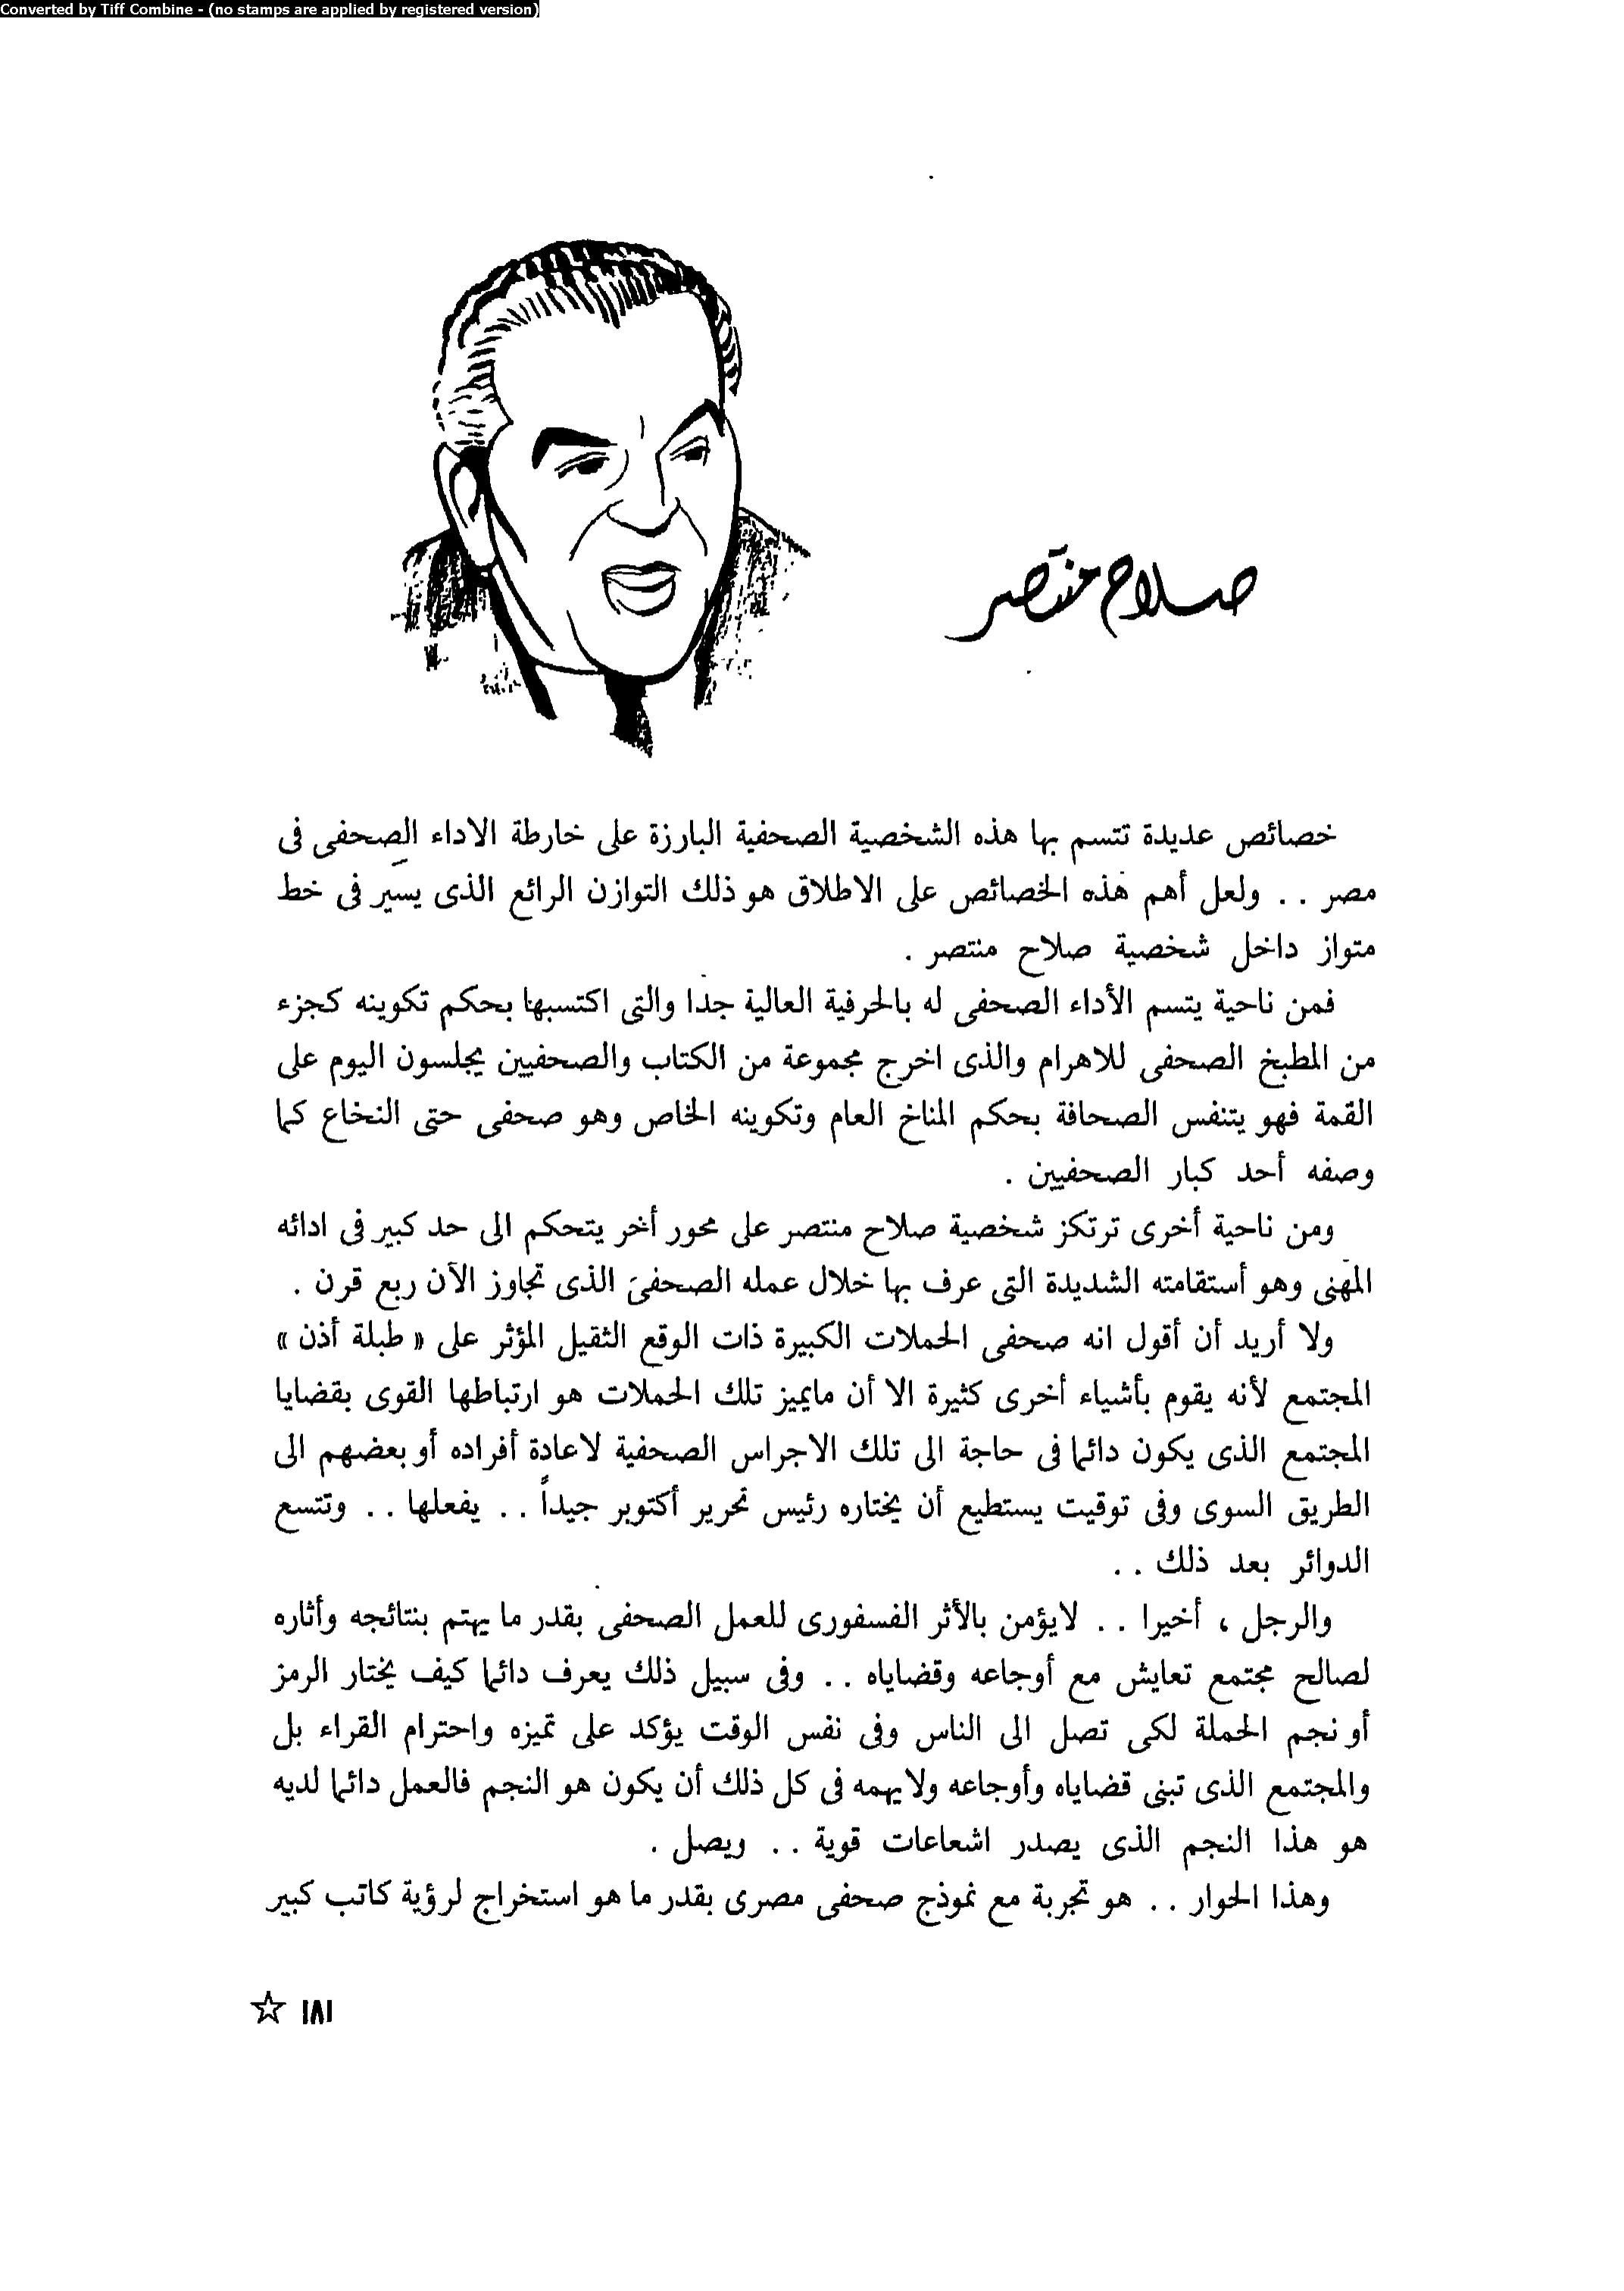 Converted by Tiff Combine - (no stamps are applied by registered version)
صلاح منتصر
خصائص عديدة تتسم بها هذه الشخصية الصحفية البارزة على خارطة الاداء الصحفى فى
مصر . . ولعل أهم هذه الخصائص على الاطلاق هو ذلك التوازن الرائع الذى يسير فى خط
متواز داخل شخصية صلاح منتصر .
فمن ناحية يتسم الأداء الصحفى له بالحرفية العالية جدا والتى اكتسبها بحكم تكوينه كجزء
من المطبخ الصحفى للاهرام والذى اخرج مجموعة من الكتاب والصحفيين يجلسون اليوم على
القمة فهو يتنفس الصحافة بحكم المناخ العام وتكوينه الخاص وهو صحفى حتى النخاع كما
وصفه أحد كبار الصحفيين .
ومن ناحية أخرى ترتكز شخصية صلاح منتصر على محور أخر يتحكم الى حد كبير فى ادائه
المهنى وهو أستقامته الشديدة التى عرف بها خلال عمله الصحفى الذى تجاوز الآن ربع قرن .
ولا أريد أن أقول انه صحفى الحملات الكبيرة ذات الوقع الثقيل المؤثر على « طبلة أذن »
المجتمع لأنه يقوم بأشياء أخرى كثيرة الا أن مايميز تلك الحملات هو ارتباطها القوى بقضايا
المجتمع الذى يكون دائما فى حاجة الى تلك الاجراس الصحفية لاعادة أفراده أو بعضهم الى
الطريق السوى وفى توقيت يستطيع أن يختاره رئيس تحرير أكتوبر جيداً . . يفعلها . . وتتسع
الدوائر بعد ذلك . .
والرجل ، أخيرا . . لايؤمن بالأثر الفسفورى للعمل الصحفى بقدر ما يهتم بنتائجه وأثاره
لصالح مجتمع تعايش مع أوجاعه وقضاياه . . وفى سبيل ذلك يعرف دائما كيف يختار الرمز
أو نجم الحملة لكى تصل الى الناس وفى نفس الوقت يؤكد على تميزه واحترام القراء بل
والمجتمع الذى تبنى قضاياه وأوجاعه ولايهمه فى كل ذلك أن يكون هو النجم فالعمل دائما لديه
هو هذا النجم الذى يصدر اشعاعات قوية . . ويصل .
وهذا الحوار . . هو تجربة مع نموذج صحفى مصرى بقدر ما هو استخراج لرؤية كاتب كبير
١٨١ ☆